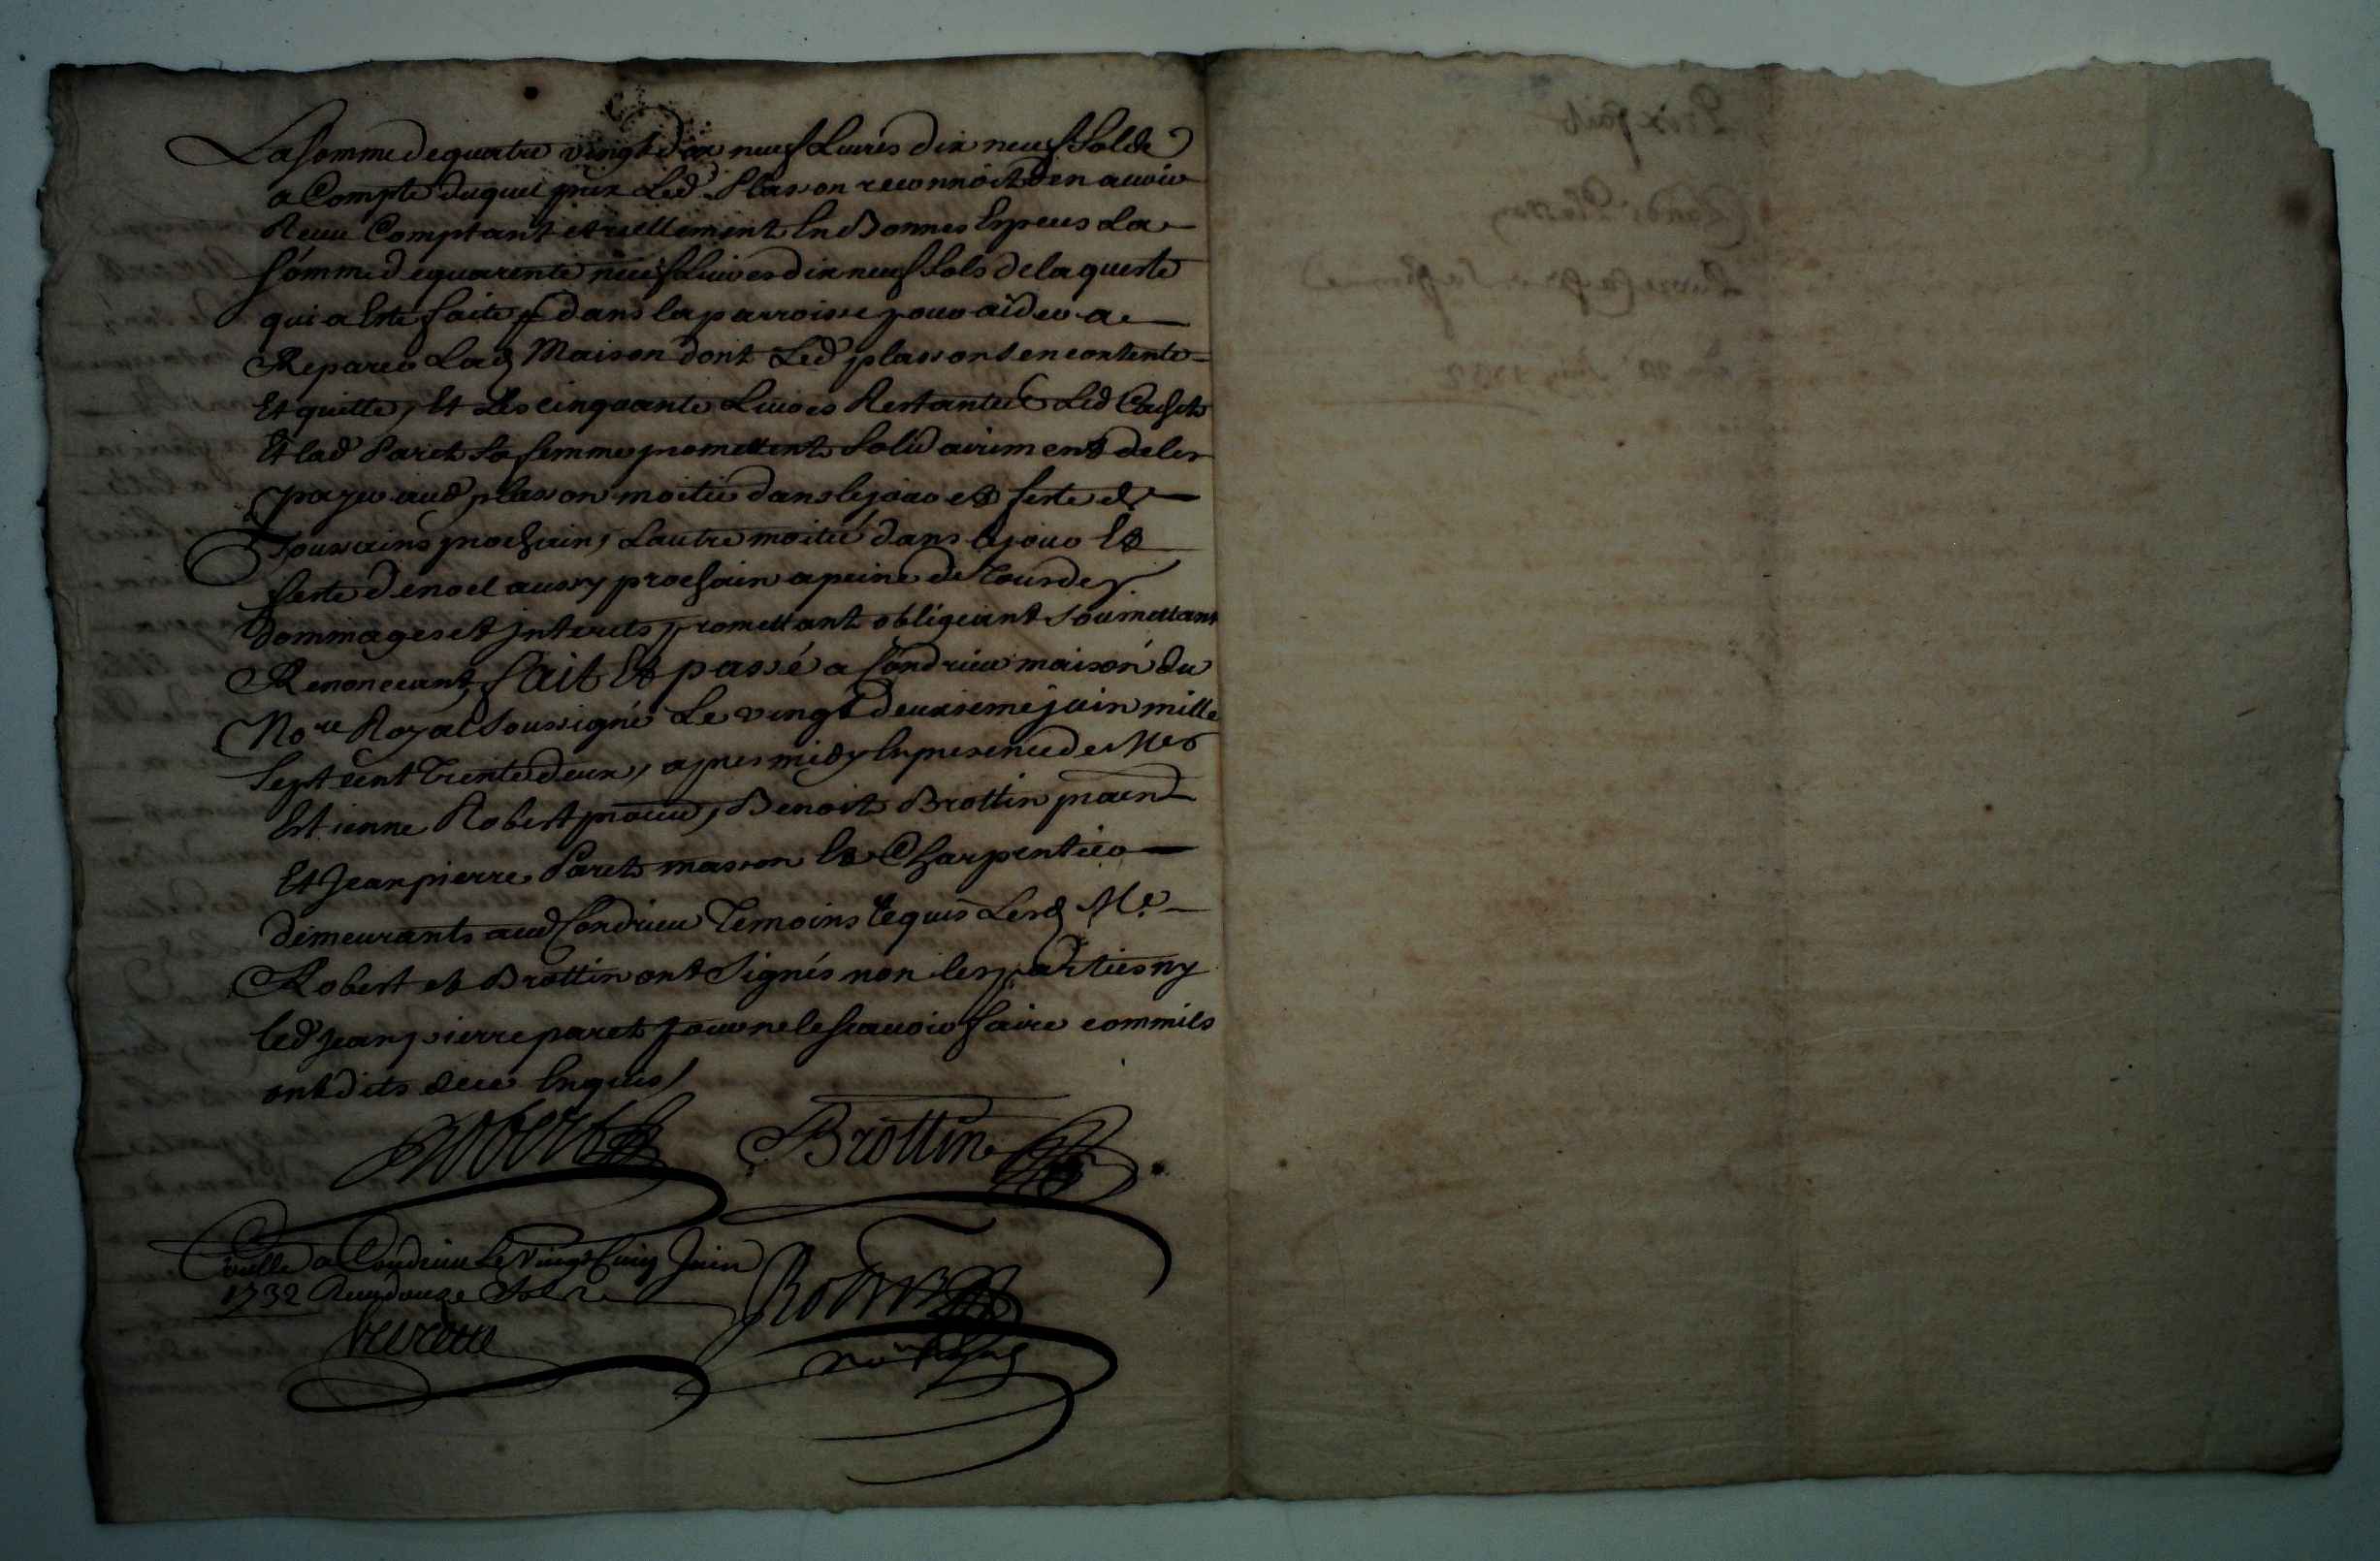 La somme de quatre vingt dix neuf Livres dix neuf Sols de
a Compte duquel prix Led. Plasson reconnoit den avoir
Receu Comptant et reellement En Bonnes Especes La
somme de quarente neuf Livres dix neuf Sols de la queste
qui a Esté faite dans la parroisse pour aider a
Reparer Lad. Maison dont Led. plasson sen contente
Et quitte, Et Les cinquante Livres Restantes Led.
Et lad. Paret Sa femme promettent Solidairement de les
payer aud. plasson moitié dans le jour et feste de
Toussains prochain, Lautre moitié dans le jour Et
feste de noel aussy prochain a peine de Tous des.
dommages et jnterets promettant obligeant Soumettant
Renonceant, fait Et passé a Condrieu maison du
No.re Royal Soussigné Le vingt deuxieme juin mille
Sept cent Trente deux, apres midy En presence de Me
Estienne Robert, Benoit Brottin
Et Jean pierre Paret masson Et Charpentier
demeurants aud. Condrieu Temoins Requis Lesd. Me
Robert et Brottin ont Signés non les parties ny
led. jean pierre paret pour ne le scavoir faire comm ils
ont dits de ce Enquis
Robert Brottin
Collé a Condrieu Le Vingt Cinq Juin
1732 Receu douze Sols
Robert
no.re Royal
Prix fait
Plasson
sa femme
du 22 Juin 1732